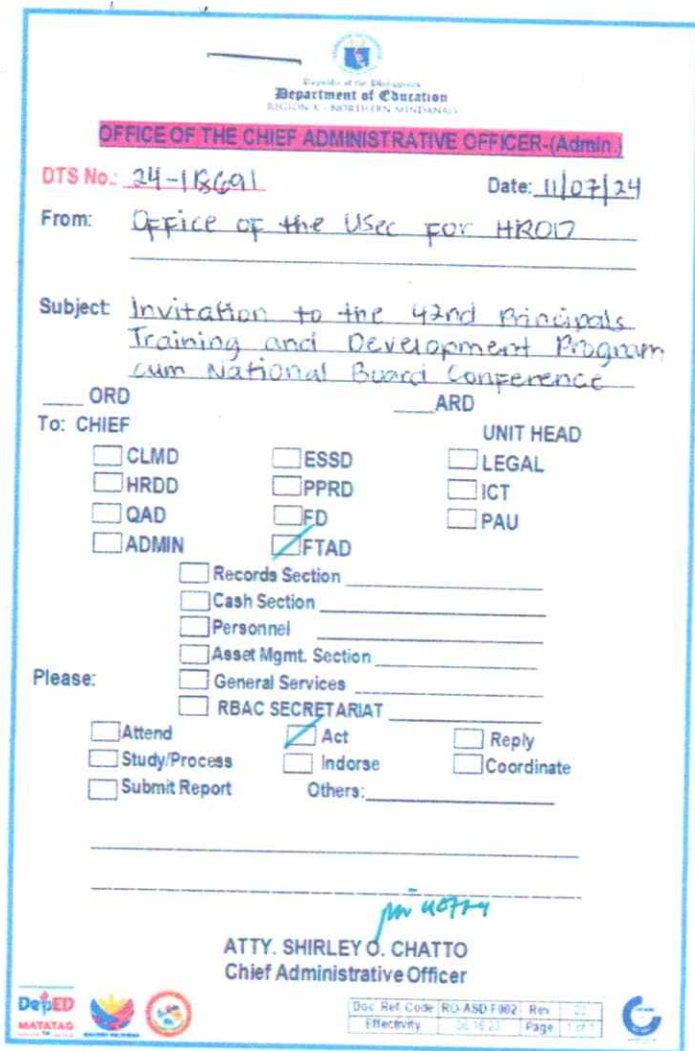 Republic of the Philippines
Department of Education
REGION X - NORTHERN MINDANAO
OFFICE OF THE CHIEF ADMINISTRATIVE OFFICER-(Admin.)
DTS No.: 24-118691 Date: 11/07/24
From: Office of the USec for HROD
Subject: Invitation to the 42nd Principals
Training and Development Program
cum National Board Conference
____ ORD ____ARD
To: CHIEF UNIT HEAD
CLMD ESSD LEGAL
HRDD PPRD ICT
QAD FD PAU
ADMIN FTAD
Records Section
Cash Section
Personnel
Asset Mgmt. Section
Please: General Services
RBAC SECRETARIAT
Attend Act Reply
Study/Process Indorse Coordinate
Submit Report Others:
ATTY. SHIRLEY O. CHATTO
Chief Administrative Officer
DepED
MATATAG
Doc. Ref. Code RO-ASD-F002 Rev 00
Effectivity Page 1 of 1